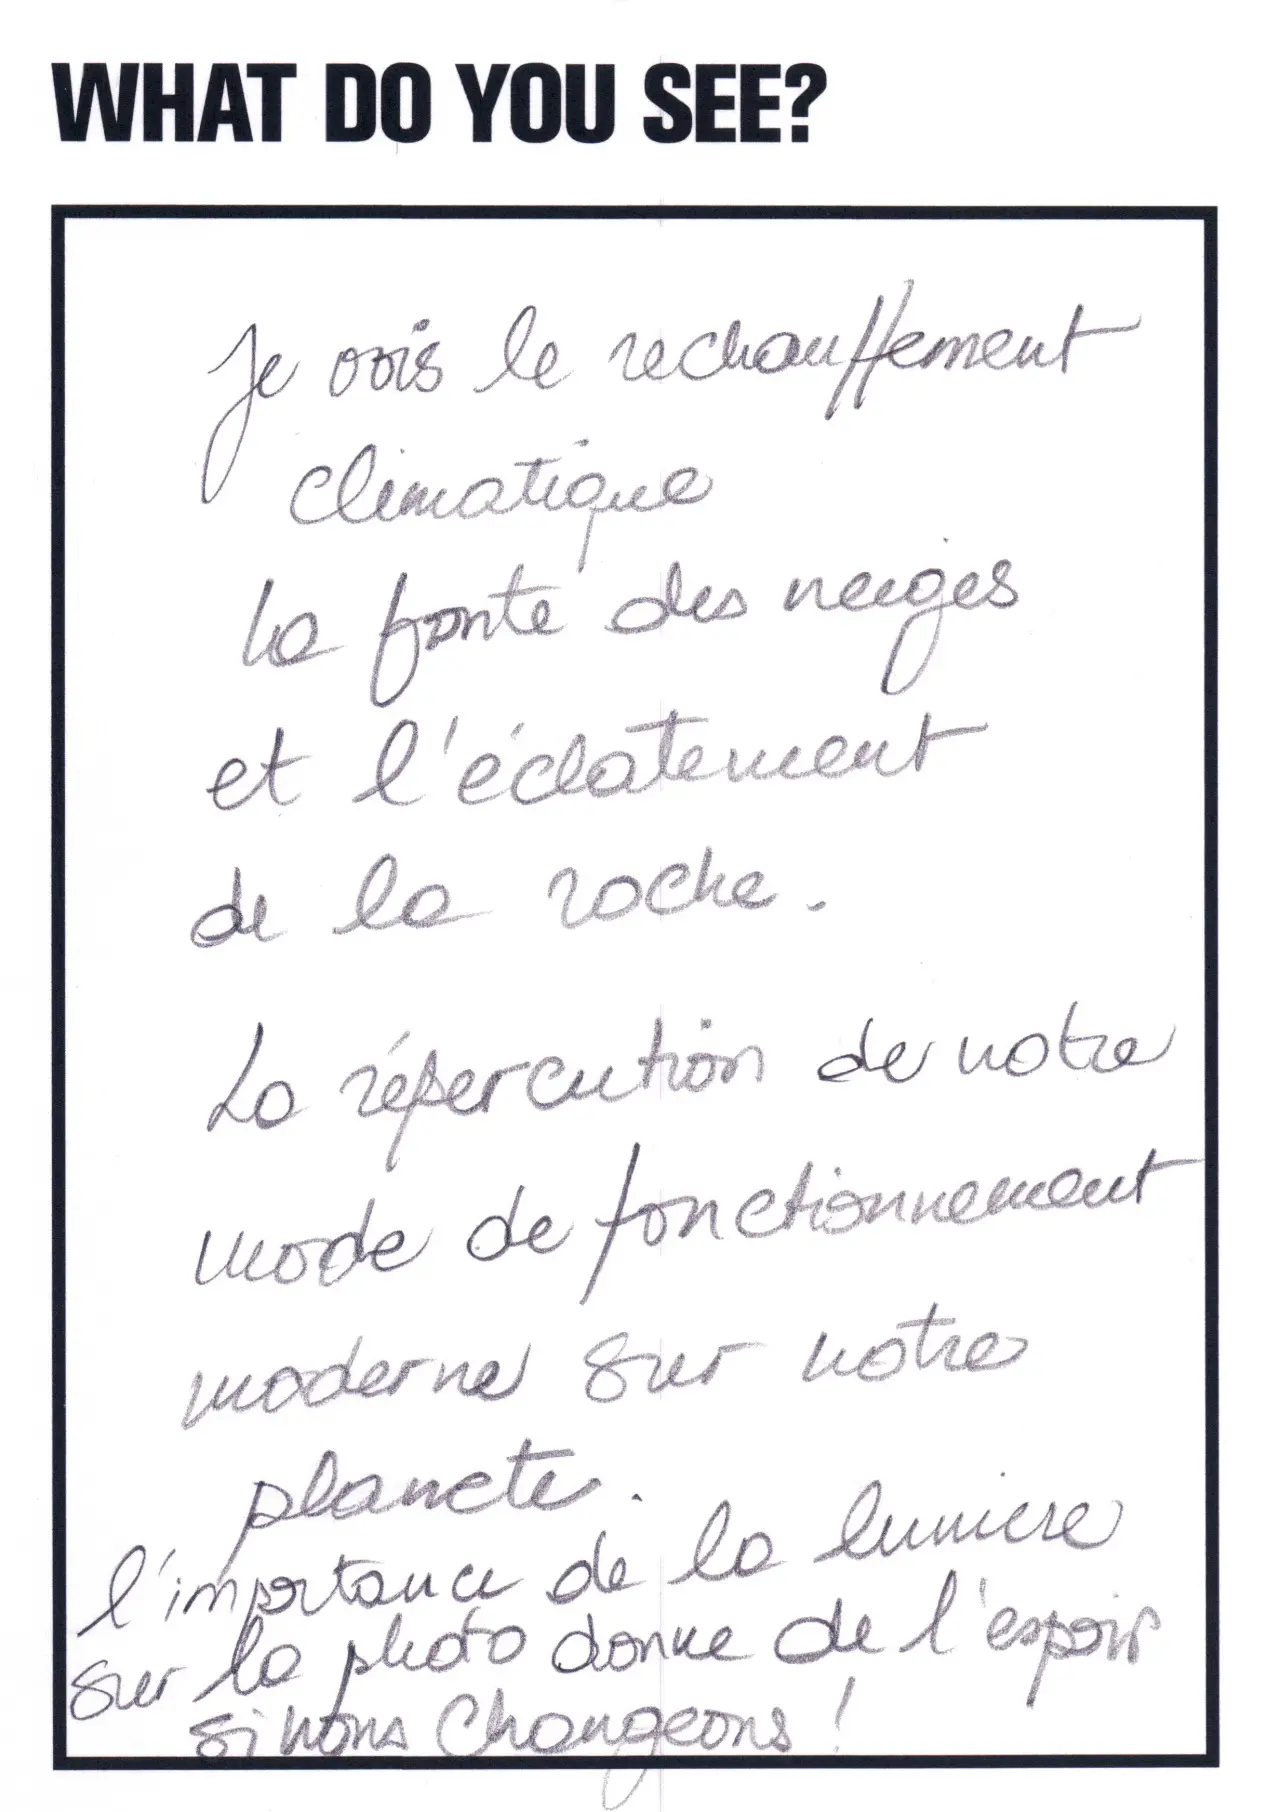 WHAT DO YOU SEE?
Je vois le rechauffement
climatique
La fonte des neiges
et l'éclatement
de la roche.
La répercution de notre
mode de fonctionnement
moderne sur notre
planete.
l'importance de la lumiere
sur la photo donne de l'espoir
si nous changeons !